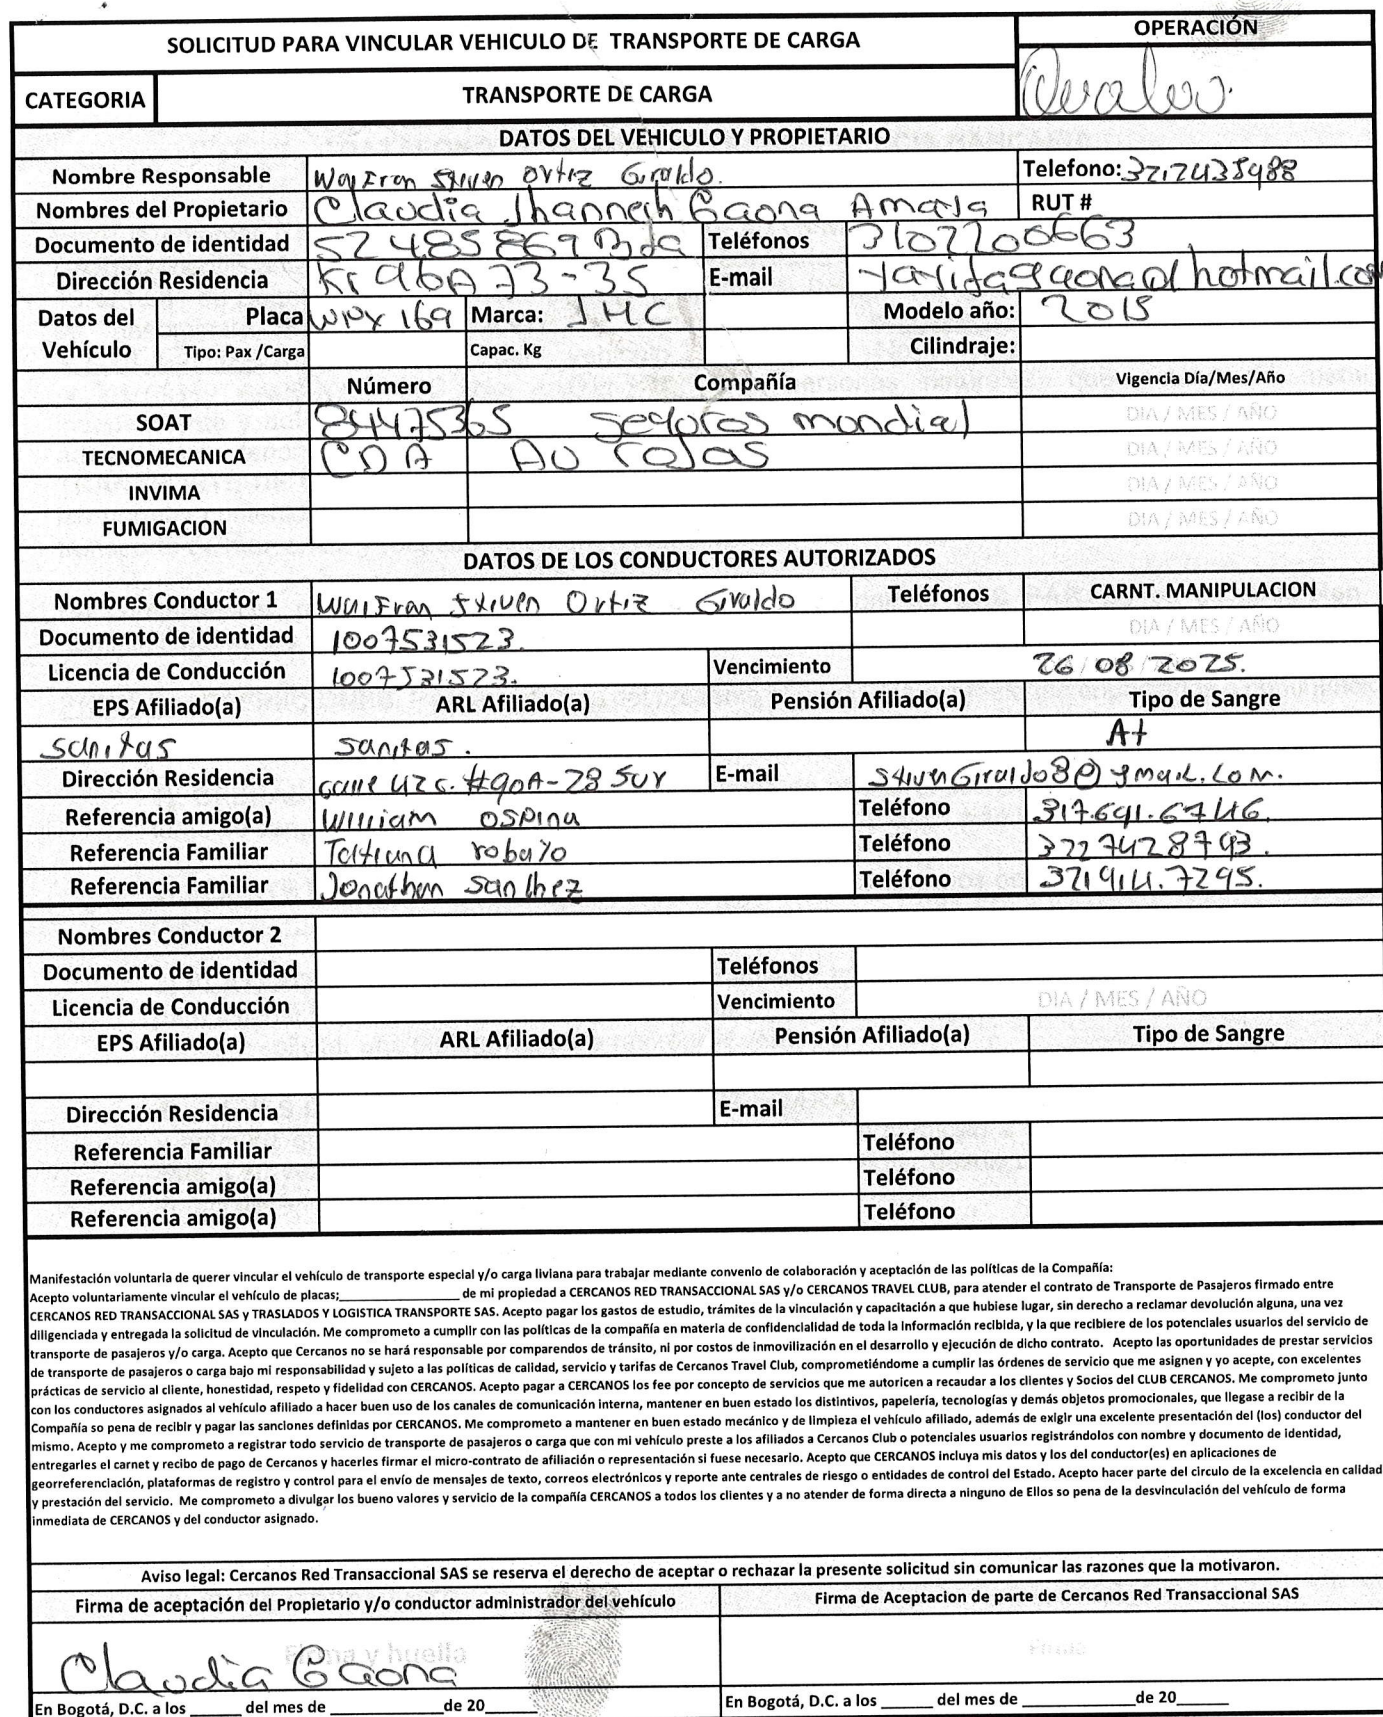 SOLICITUD PARA VINCULAR VEHICULO DE TRANSPORTE DE CARGA
OPERACIÓN
CATEGORIA
TRANSPORTE DE CARGA
DATOS DEL VEHICULO Y PROPIETARIO
Nombre Responsable Stiven Ortiz Giraldo. Telefono:
Nombres del Propietario Claudia Jhanneth Gaona RUT #
Documento de identidad 52485869 Bta Teléfonos 3107200663
Dirección Residencia Kr 96A 73-35 E-mail
Datos del Vehículo Placa WPX 169 Marca: JMC Modelo año: 2015
Tipo: Pax /Carga Capac. Kg Cilindraje:
Número Compañía Vigencia Día/Mes/Año
SOAT 84475365 seguros mondial DIA / MES / AÑO
TECNOMECANICA CDA AU rojas DIA / MES / AÑO
INVIMA DIA / MES / AÑO
FUMIGACION DIA / MES / AÑO
DATOS DE LOS CONDUCTORES AUTORIZADOS
Nombres Conductor 1 Stiven Ortiz Giraldo Teléfonos CARNT. MANIPULACION
Documento de identidad 1007531523. DIA / MES / AÑO
Licencia de Conducción 1007531523. Vencimiento 26 08 2025.
EPS Afiliado(a) ARL Afiliado(a) Pensión Afiliado(a) Tipo de Sangre
sanitas sanitas. A+
Dirección Residencia calle 42 c. #90A-28 sur E-mail StivenGiraldo8@gmail.com.
Referencia amigo(a) William Ospina Teléfono 317.691.6746.
Referencia Familiar Tatiana robayo Teléfono 3227428793.
Referencia Familiar Jonathan Sanchez Teléfono 321914.7295.
Nombres Conductor 2
Documento de identidad Teléfonos
Licencia de Conducción Vencimiento DIA / MES / AÑO
EPS Afiliado(a) ARL Afiliado(a) Pensión Afiliado(a) Tipo de Sangre
Dirección Residencia E-mail
Referencia Familiar Teléfono
Referencia amigo(a) Teléfono
Referencia amigo(a) Teléfono
Manifestación voluntaria de querer vincular el vehículo de transporte especial y/o carga liviana para trabajar mediante convenio de colaboración y aceptación de las políticas de la Compañía:
Acepto voluntariamente vincular el vehículo de placas;__________________ de mi propiedad a CERCANOS RED TRANSACCIONAL SAS y/o CERCANOS TRAVEL CLUB, para atender el contrato de Transporte de Pasajeros firmado entre
CERCANOS RED TRANSACCIONAL SAS y TRASLADOS Y LOGISTICA TRANSPORTE SAS. Acepto pagar los gastos de estudio, trámites de la vinculación y capacitación a que hubiese lugar, sin derecho a reclamar devolución alguna, una vez
diligenciada y entregada la solicitud de vinculación. Me comprometo a cumplir con las políticas de la compañía en materia de confidencialidad de toda la información recibida, y la que recibiere de los potenciales usuarios del servicio de
transporte de pasajeros y/o carga. Acepto que Cercanos no se hará responsable por comparendos de tránsito, ni por costos de inmovilización en el desarrollo y ejecución de dicho contrato. Acepto las oportunidades de prestar servicios
de transporte de pasajeros o carga bajo mi responsabilidad y sujeto a las políticas de calidad, servicio y tarifas de Cercanos Travel Club, comprometiéndome a cumplir las órdenes de servicio que me asignen y yo acepte, con excelentes
prácticas de servicio al cliente, honestidad, respeto y fidelidad con CERCANOS. Acepto pagar a CERCANOS los fee por concepto de servicios que me autoricen a recaudar a los clientes y Socios del CLUB CERCANOS. Me comprometo junto
con los conductores asignados al vehículo afiliado a hacer buen uso de los canales de comunicación interna, mantener en buen estado los distintivos, papelería, tecnologías y demás objetos promocionales, que llegase a recibir de la
Compañía so pena de recibir y pagar las sanciones definidas por CERCANOS. Me comprometo a mantener en buen estado mecánico y de limpieza el vehículo afiliado, además de exigir una excelente presentación del (los) conductor del
mismo. Acepto y me comprometo a registrar todo servicio de transporte de pasajeros o carga que con mi vehículo preste a los afiliados a Cercanos Club o potenciales usuarios registrándolos con nombre y documento de identidad,
entregarles el carnet y recibo de pago de Cercanos y hacerles firmar el micro-contrato de afiliación o representación si fuese necesario. Acepto que CERCANOS incluya mis datos y los del conductor(es) en aplicaciones de
georreferenciación, plataformas de registro y control para el envío de mensajes de texto, correos electrónicos y reporte ante centrales de riesgo o entidades de control del Estado. Acepto hacer parte del circulo de la excelencia en calidad
y prestación del servicio. Me comprometo a divulgar los bueno valores y servicio de la compañía CERCANOS a todos los clientes y a no atender de forma directa a ninguno de Ellos so pena de la desvinculación del vehículo de forma
inmediata de CERCANOS y del conductor asignado.
Aviso legal: Cercanos Red Transaccional SAS se reserva el derecho de aceptar o rechazar la presente solicitud sin comunicar las razones que la motivaron.
Firma de aceptación del Propietario y/o conductor administrador del vehículo Firma de Aceptacion de parte de Cercanos Red Transaccional SAS
Firma y huella Firma
Claudia Gaona
En Bogotá, D.C. a los ______ del mes de _____________de 20______ En Bogotá, D.C. a los ______ del mes de _____________de 20______